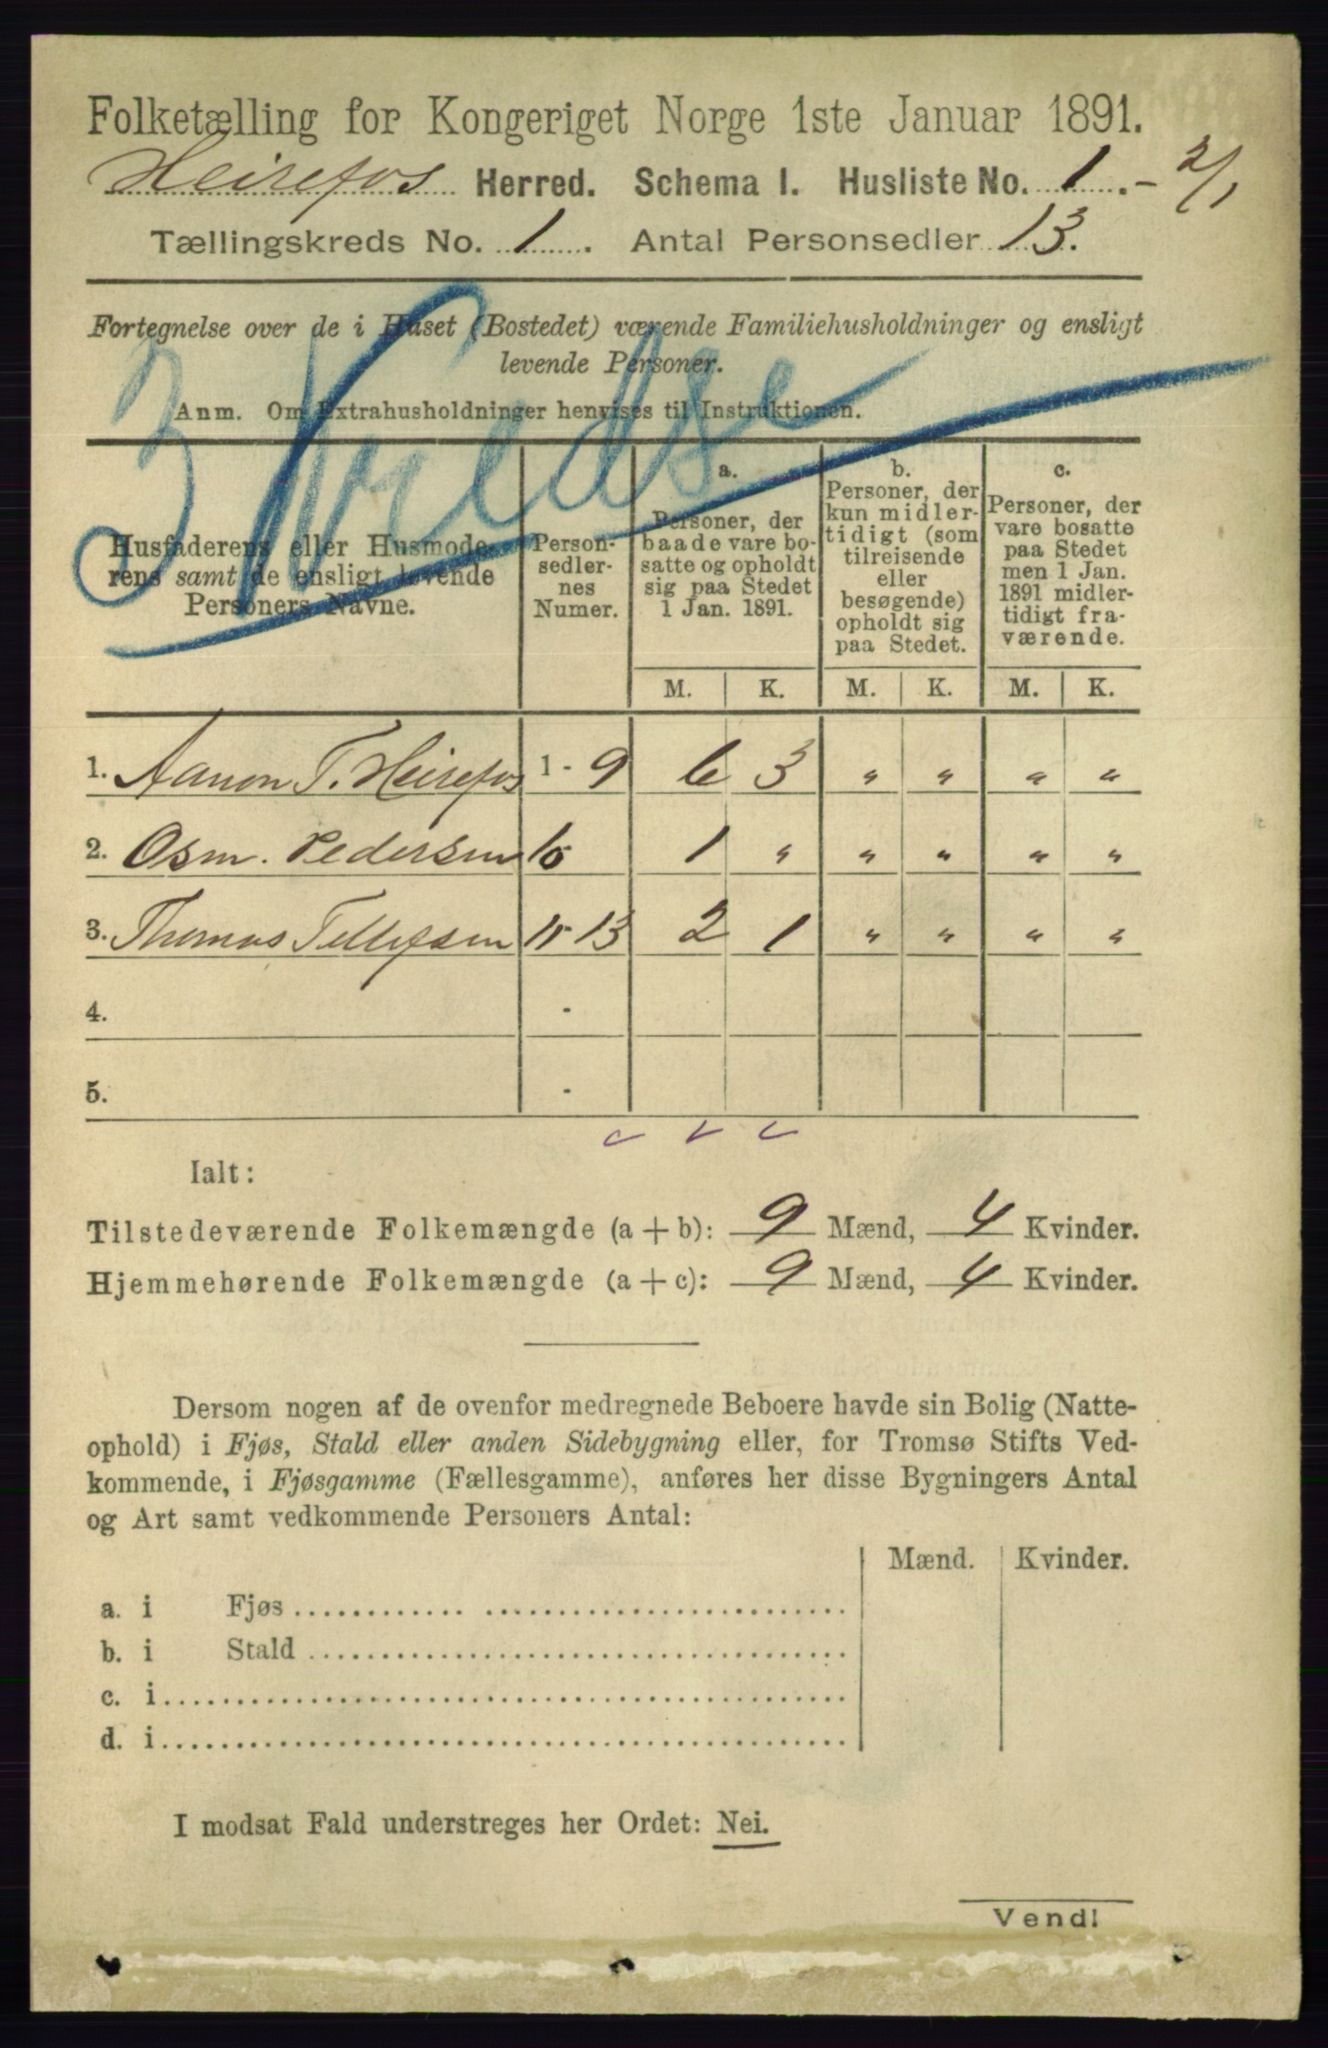 Folketælling for Kongeriget Norge 1ste Januar 1891.
Heirefos Herred. Schema I. Husliste No. 1. - 2/1
Tællingskreds No. 1. Antal Personsedler 13.
Fortegnelse over de i Huset (Bostedet) værende Familiehusholdninger og ensligt
levende Personer.
Anm. Om Extrahusholdninger henvises til Instruktionen.
3 Kredse
Husfaderens eller Husmode-
rens samt de ensligt levende
Personers Navne.
Person-
sedler-
nes
Numer.
a.
Personer, der
baade vare bo-
satte og opholdt
sig paa Stedet
1 Jan. 1891.
b.
Personer, der
kun midler-
tidigt (som
tilreisende
eller
besøgende)
opholdt sig
paa Stedet.
c.
Personer, der
vare bosatte
paa Stedet
men 1 Jan.
1891 midler-
tidigt fra-
værende.
M. K. M. K. M. K.
1. Aanon T. Heirefos 1 - 9 6 3 " " " "
2. Osm. Pedersen 10 1 " " " " "
3. Thomas Tellefsen 11-13 2 1 " " " "
4. -
5. -
Ialt:
Tilstedeværende Folkemængde (a + b): 9 Mænd, 4 Kvinder.
Hjemmehørende Folkemængde (a + c): 9 Mænd, 4 Kvinder.
Dersom nogen af de ovenfor medregnede Beboere havde sin Bolig (Natte-
ophold) i Fjøs, Stald eller anden Sidebygning eller, for Tromsø Stifts Ved-
kommende, i Fjøsgamme (Fællesgamme), anføres her disse Bygningers Antal
og Art samt vedkommende Personers Antal:
Mænd. Kvinder.
a. i Fjøs
b. i Stald
c. i
d. i
I modsat Fald understreges her Ordet: Nei.
Vend!